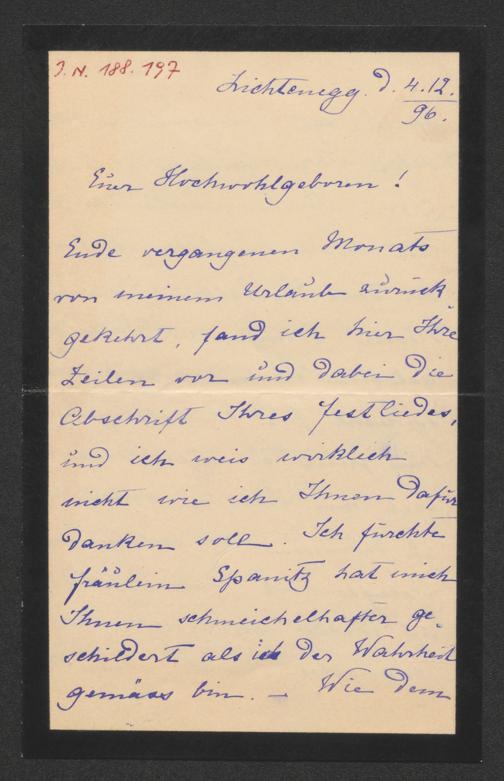 J.N. 188.197
Lichtenegg. d. 4.12.
96.
Euer Hochwohlgeboren!
Ende vergangenen Monats
von meinem Urlaub zurück
gekehrt, fand ich hier Ihre
Zeilen vor und dabei die
Abschrift Ihres Festliedes,
und ich weis wirklich
nicht wie ich Ihnen dafür
danken soll. Ich fürchte
Fräulein Spanitz hat mich
Ihnen schmeichelhafter ge-
schildert als ich der Wahrheit
gemäss bin. – Wie dem